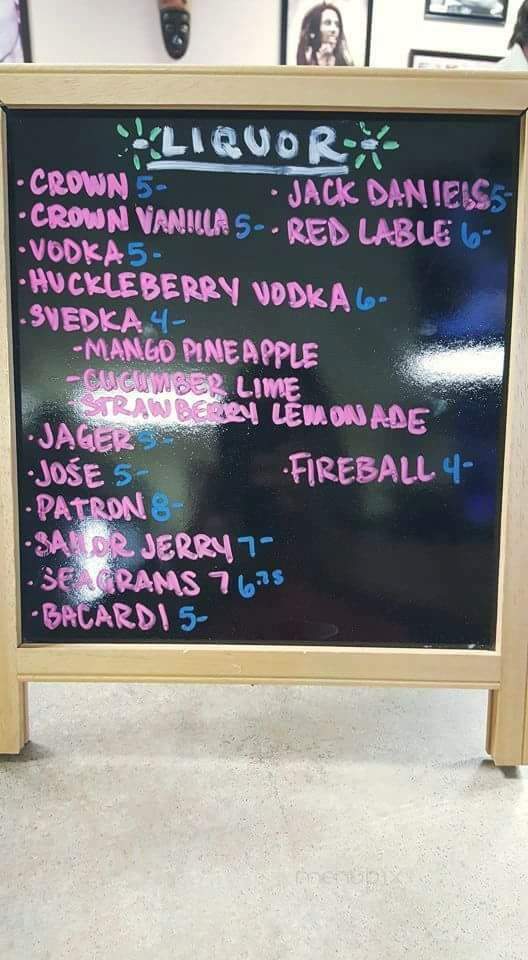 LIQUOR
· CROWN 5-
· CROWN VANILLA 5-
· VODKA 5-
· HUCKLEBERRY VODKA 6-
· SVEDKA 4-
- MANGO PINEAPPLE
- CUCUMBER LIME
STRAWBERRY LEMONADE
· JAGER 5-
· JOSE 5-
· PATRON 8-
· SAILOR JERRY 7-
· SEAGRAMS 7 6.75
· BACARDI 5-
· JACK DANIELS 5-
· RED LABLE 6-
· FIREBALL 4-
menupix